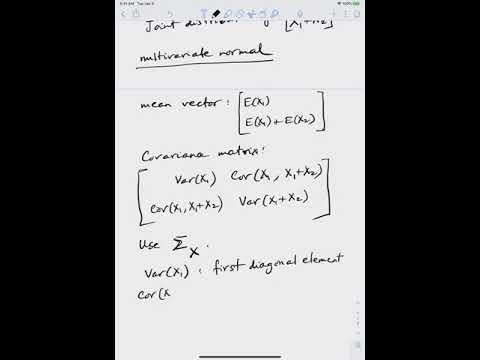 9:41 AM Tue Jan 5
Joint distribut [X₁+X₂]
multivariate normal
mean vector: [E(X₁)
E(X₁)+E(X₂)]
Covariance matrix:
[Var(X₁) Cov(X₁, X₁+X₂)
Cov(X₁, X₁+X₂) Var(X₁+X₂)]
Use Σ_X.
Var(X₁): first diagonal element
Cov(X